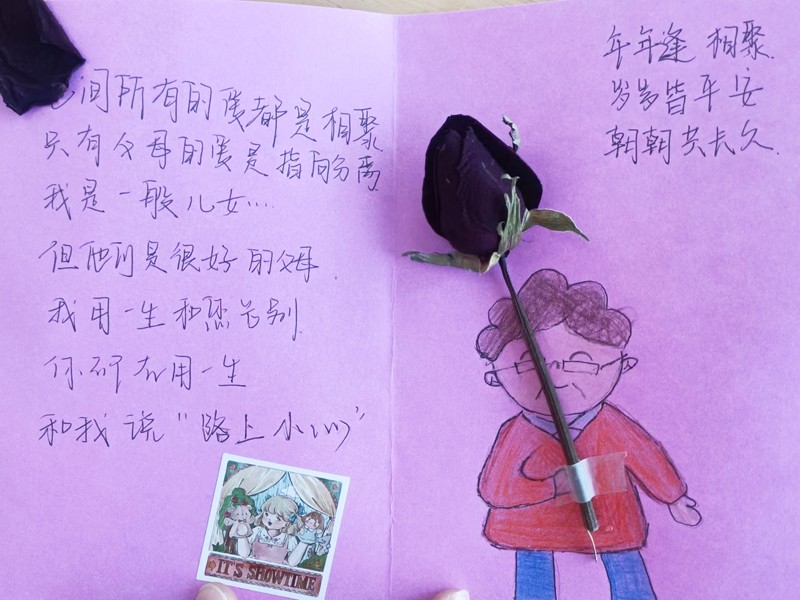 间所有的爱都是相聚
只有父母的爱是指向分离
我是一般儿女....
但他们是很好的父母.
我用一生和您告别.
你却在用一生
和我说"路上小心"
IT'S SHOWTIME
年年逢相聚.
岁岁皆平安
朝朝共长久.